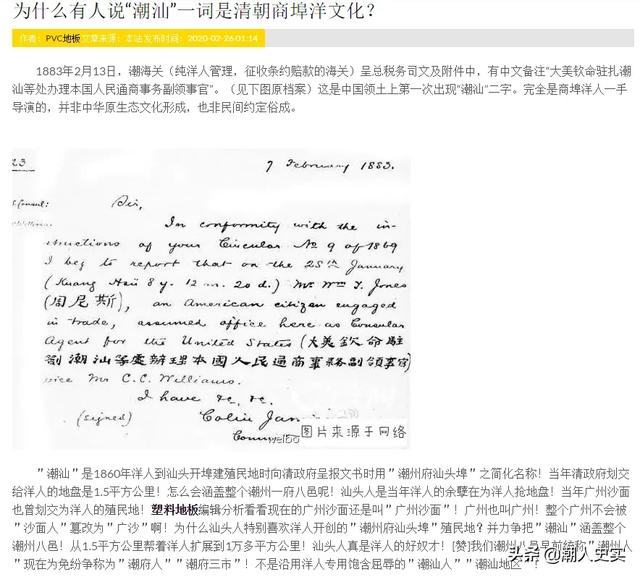 为什么有人说“潮汕”一词是清朝商埠洋文化？
作者：PVC地板 文章来源：本站 发布时间：2020-02-26 01:14
1883年2月13日，潮海关（纯洋人管理，征收条约赔款的海关）呈总税务司文及附件中，有中文备注“大美钦命驻扎潮
汕等处办理本国人民通商事务副领事官”。（见下图原档案）这是中国领土上第一次出现“潮汕”二字。完全是商埠洋人一手
导演的，并非中华原生态文化形成，也非民间约定俗成。
23
7 February 1883.
Consul:
Williams.
Sir,
In conformity with the in-
structions of your Circular No 9 of 1869
I beg to report that on the 28th January
(Kuang Hsü 8 y. 12 m. 20 d.) Mr Wm Y. Jones
(周尼斯), an American citizen engaged
in trade, assumed office here as Consular
Agent for the United States (大美欽命駐
劄潮汕等處辦理本國人民通商事務副領事官)
vice Mr C. C. Williams.
I have &c, &c.
(signed) Colin Jan
Comm
图片来源于网络
＂潮汕＂是1860年洋人到汕头开埠建殖民地时向清政府呈报文书时用＂潮州府汕头埠＂之简化名称！当年清政府划交
给洋人的地盘是1.5平方公里！怎么会涵盖整个潮州一府八邑呢！汕头人是当年洋人的余孽在为洋人抢地盘！当年广州沙面
也曾划交为洋人的殖民地！塑料地板编辑分析看看现在的广州沙面还是叫＂广州沙面＂！广州也叫广州！整个广州不会被
＂沙面人＂篡改为＂广沙＂啊！为什么汕头人特别喜欢洋人开创的＂潮州府汕头埠＂殖民地？并力争把＂潮汕＂涵盖整个
潮州八邑！从1.5平方公里帮着洋人扩展到1万多平方公里！汕头人真是洋人的好奴才！[赞]我们潮州八邑早前统称＂潮州人
＂现在为免纷争称为＂潮府人＂＂潮府三市＂！不是沿用洋人专用饱含屈辱的＂潮汕人＂＂潮汕地区＂！
头条@潮人史实